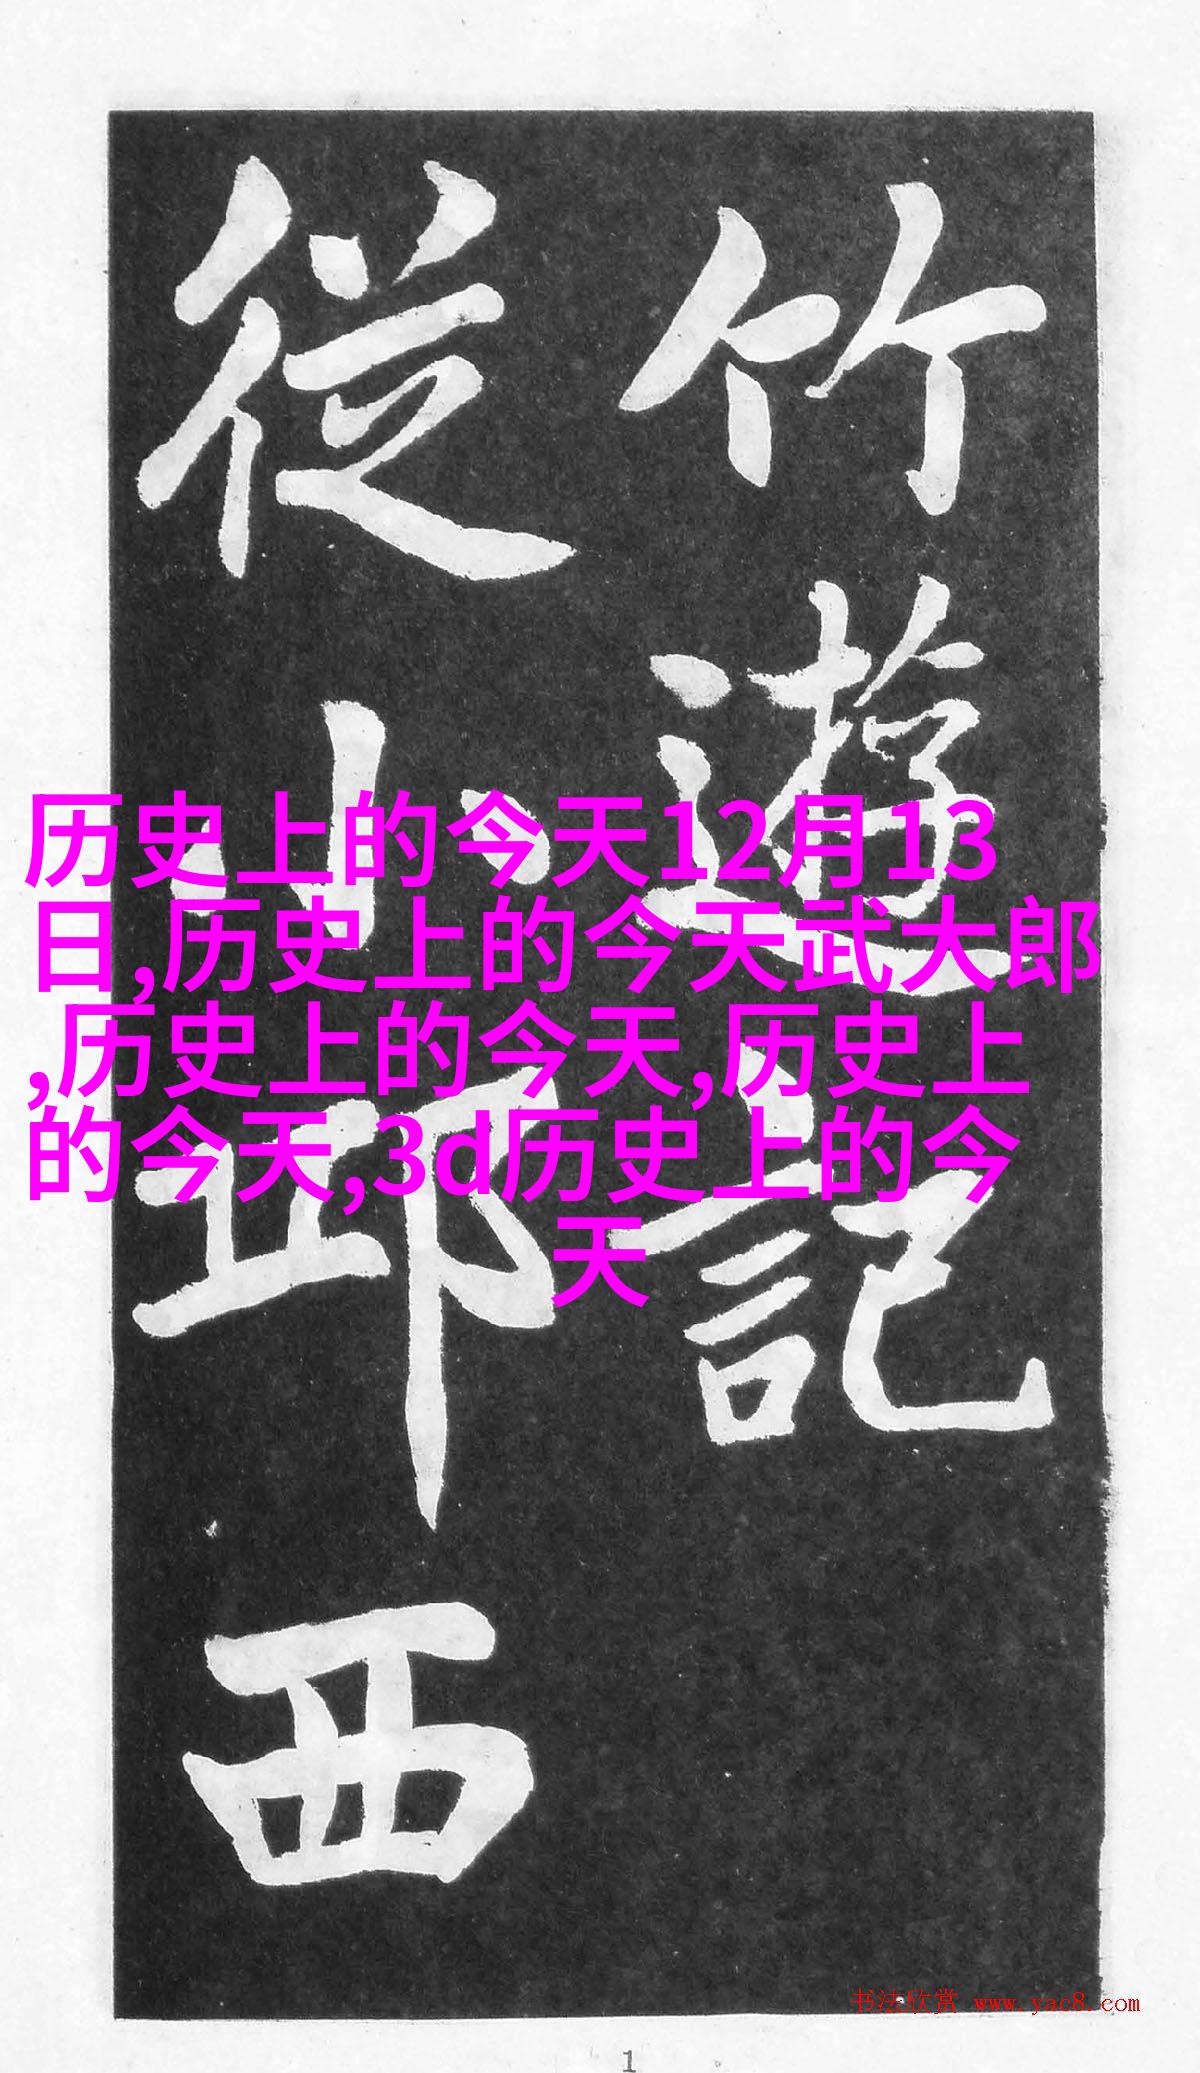 竹遊記
從小邱西
历史上的今天12月13
日,历史上的今天武大郎
,历史上的今天,历史上
的今天,3d历史上的今
天
书法欣赏 www.yac8.com
1